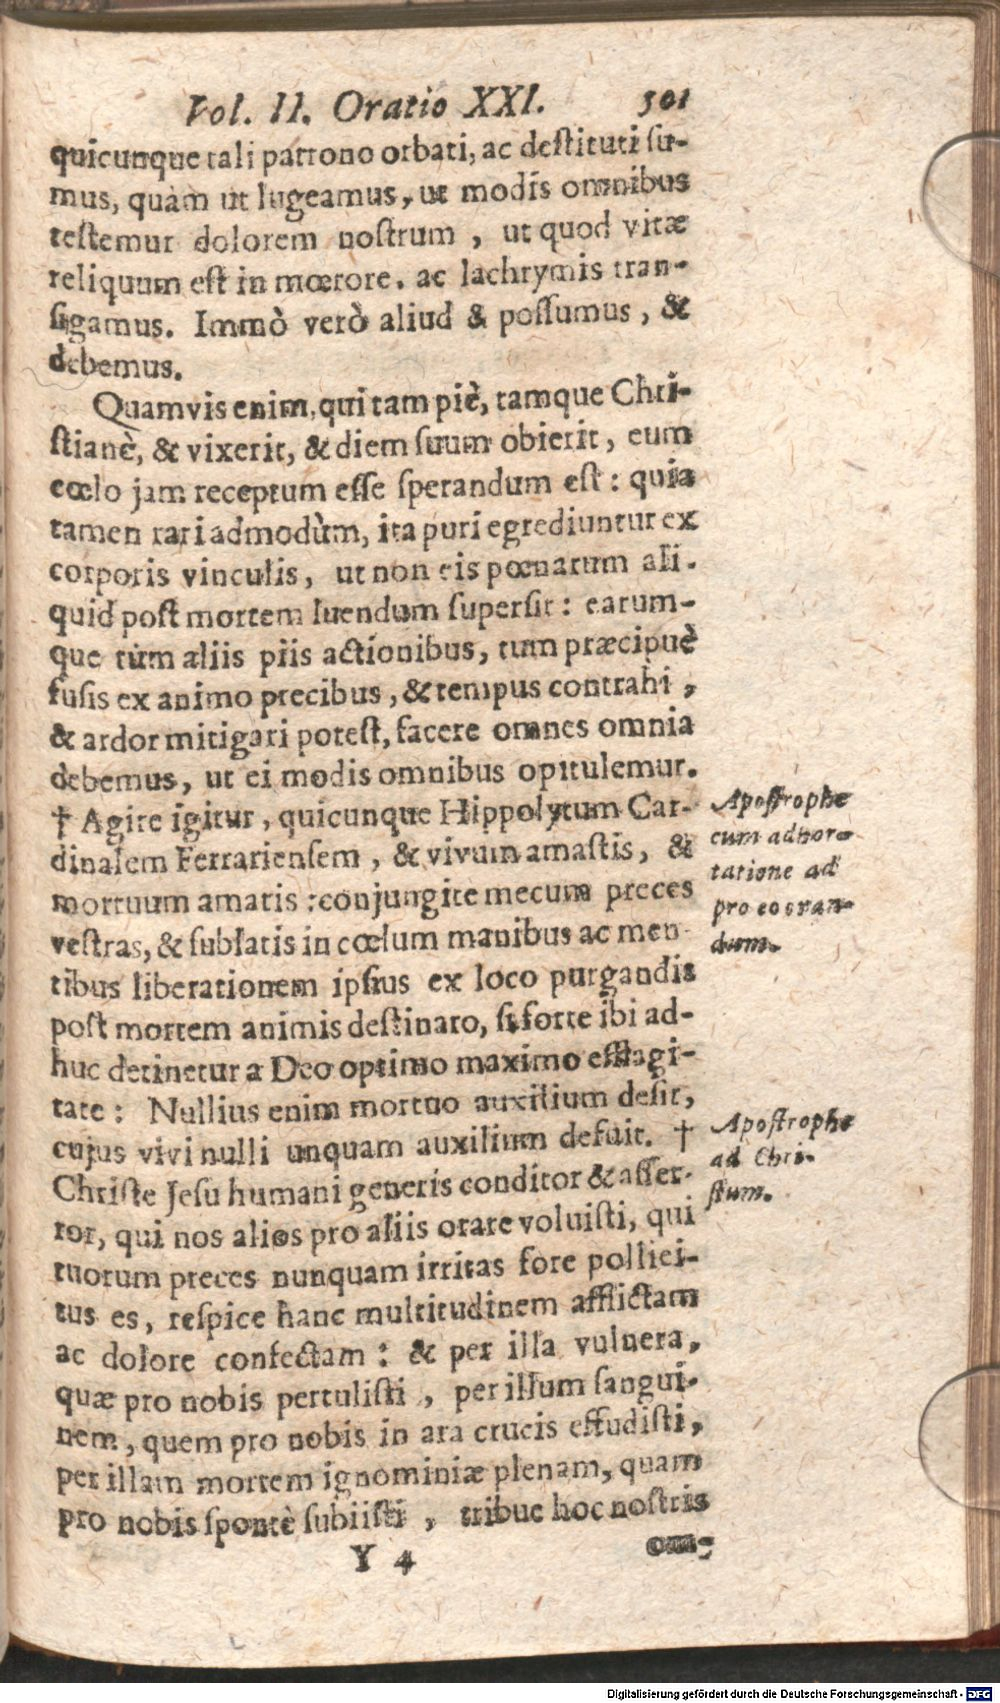 Vol. II. Oratio XXI. 501
quicunque tali patrono orbati, ac destituti su-
mus, quàm ut lugeamus, ut modis omnibus
testemur dolorem nostrum, ut quod vitæ
reliquum est in mœrore, ac lachrymis tran-
sigamus. Immò verò aliud & possumus, &
debemus.
Quamvis enim, qui tam piè, tamque Chri-
stianè, & vixerit, & diem suum obierit, eum
cœlo jam receptum esse sperandum est: quia
tamen rari admodùm, ita puri egrediuntur ex
corporis vinculis, ut non eis pœnarum ali-
quid post mortem luendum supersit: earum-
que tùm aliis piis actionibus, tum præcipuè
fusis ex animo precibus, & tempus contrahi,
& ardor mitigari potest, facere omnes omnia
debemus, ut ei modis omnibus opitulemur.
† Agite igitur, quicunque Hippolytum Car-
dinalem Ferrariensem, & vivum amastis, &
mortuum amatis: conjungite mecum preces
vestras, & sublatis in cœlum manibus ac men-
tibus liberationem ipsius ex loco purgandis
post mortem animis destinato, si forte ibi ad-
huc detinetur a Deo optimo maximo efflagi-
tate: Nullius enim mortuo auxilium desit,
cujus vivi nulli unquam auxilium defuit. †
Christe Jesu humani generis conditor & asser-
tor, qui nos alios pro aliis orare voluisti, qui
tuorum preces nunquam irritas fore pollici-
tus es, respice hanc multitudinem afflictam
ac dolore confectam: & per illa vulnera,
quæ pro nobis pertulisti, per illum sangui-
nem, quem pro nobis in ara crucis effudisti,
per illam mortem ignominiæ plenam, quam
pro nobis spontè subiisti, tribue hoc nostris
Y 4 om-
Apostrophe
cum adhor-
tatione ad
pro eo oran-
dum.
Apostrophe
ad Chri-
stum.
Digitalisierung gefördert durch die Deutsche Forschungsgemeinschaft - DFG